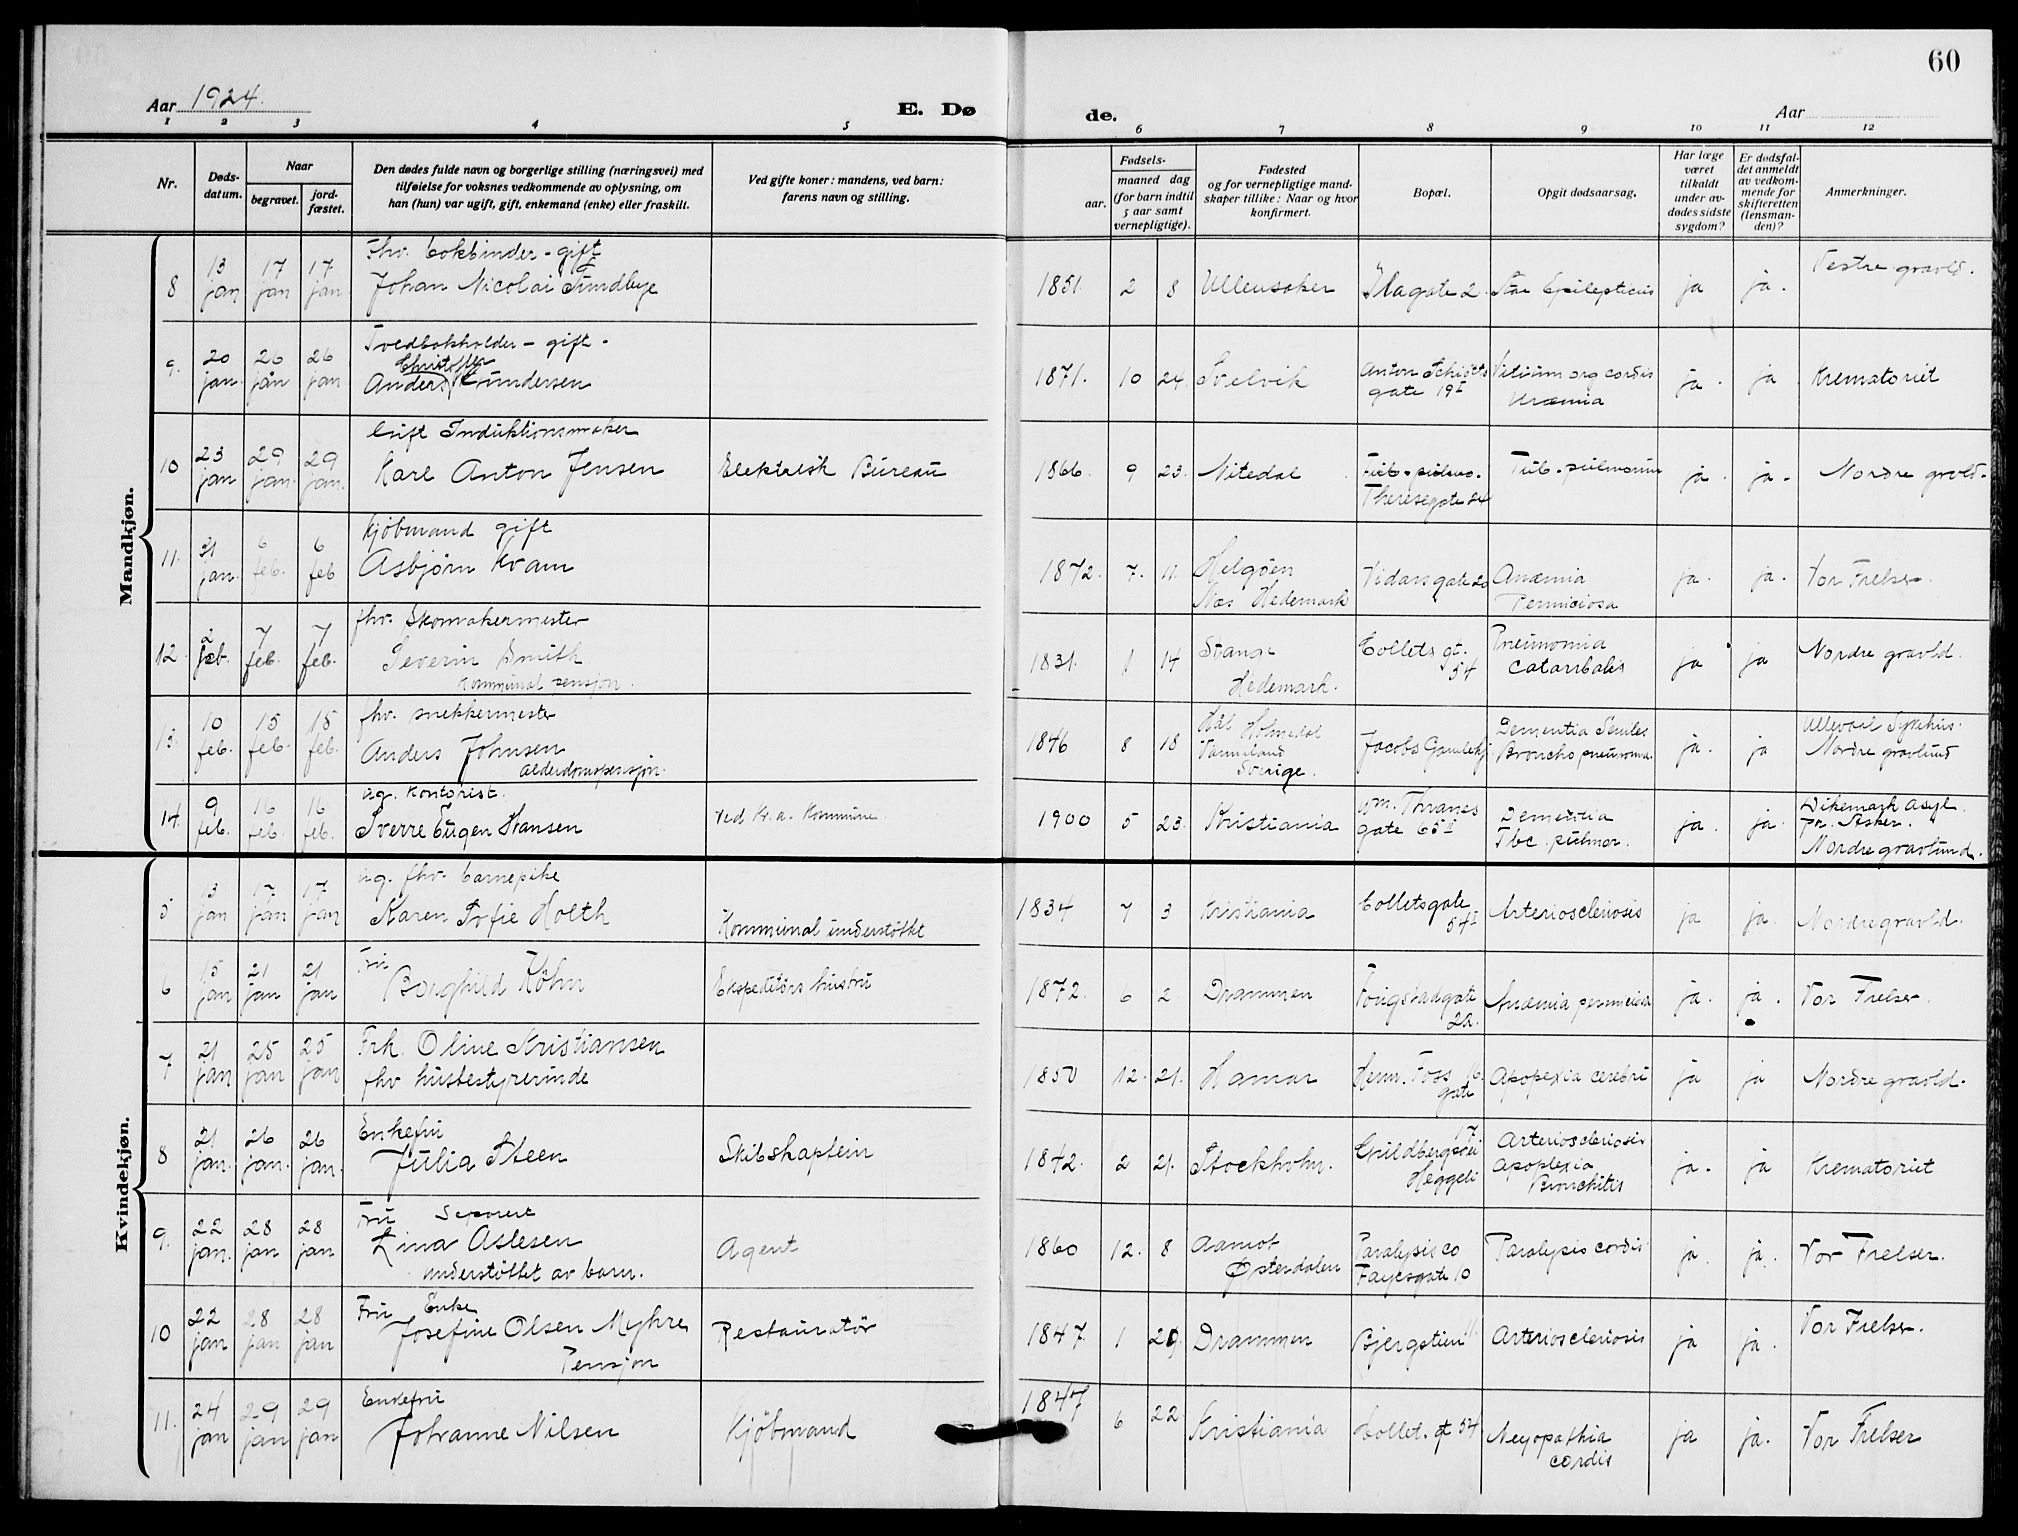 60
Aar 1924.
E. Dø
de.
Aar
1 2 3 4 5 6 7 8 9 10 11 12
Nr.
Døds-
datum.
Naar
begravet.
jord-
fæstet.
Den dødes fulde navn og borgerlige stilling (næringsvei) med
tilføielse for voksnes vedkommende av oplysning, om
han (hun) var ugift, gift, enkemand (enke) eller fraskilt.
Ved gifte koner: mandens, ved barn:
farens navn og stilling.
Fødsels-
aar.
maaned dag
(for barn indtil
5 aar samt
vernepligtige).
Fødested
og for vernepligtige mand-
skaper tillike: Naar og hvor
konfirmert.
Bopæl.
Opgit dødsaarsag.
Har læge
været
tilkaldt
under av-
dødes sidste
sygdom?
Er dødsfal-
det anmeldt
av vedkom-
mende for
skifteretten
(lensman-
den)?
Anmerkninger.
Mandkjøn.
8 13 jan 17 jan 17 jan
Fhv. bokbinder - gift
Johan Nicolai Tundbye
1851. 2 8 Ullensaker Ilagate 2. Epilepticus ja ja. Vestre gravld.
9. 20 jan. 26 jan 26 jan
Hovedbokholder - gift.
Christoffer
Anders Gundersen
1871. 10 24. Svelvik Anton Schiøtts
gate 19 I
Vitium org cordis
Uræmia
ja. ja Krematoriet
10 23 jan 29 jan. 29 jan.
Gift Induktionsmaker
Karl Anton Jensen
Elektrisk Bureau
1866. 9 23. Nitedal Tub. pulmo.
Theresegate 24
Tub. pulmonum
ja. ja. Nordre gravld.
11. 31 jan. 6 feb. 6 feb
Kjöbmand gift
Asbjørn Kvam
1872. 7. 11. Helgöen
Næs Hedemark
Vidarsgate 20
Anæmia
Perniciosa
ja. ja. Vor Frelser.
12. 2 feb. 7 feb. 7 feb.
fhv. Skomakermester
Severin Smith
Kommunal pensjon.
1831. 1 14 Stange
Hedemark.
Collets gt.
54
Pneumonia
catarrhales
ja ja Nordre gravld.
13. 10 feb. 15 feb. 15 feb.
fhv. snekkermester
Anders Johnsen
alderdomspensjon.
1846 8 18 Holmedal
Värmland
Sverige.
Dementia Seniles
Broncho pneumonia.
ja. ja
Ullevaal Sykehus.
Nordre gravlund
14. 9 feb. 16 feb. 16 feb.
ug. Kontorist.
Sverre Eugen Hansen
Ved Kr.a. Kommune
1900 5 23. Kristiania Wm. Thranes
gate 65 II
Dementia
Tbc. pulmon.
ja. ja
Dikemark Asyl.
pr. Asker.
Nordre gravlund.
Kvindekjøn.
5 13 jan 17 jan 17. jan
ug. fhv. barnepike
Karen Sofie Holth
Kommunal understöttet
1834 7 3 Kristiania Colletsgate
54 I
Arteriosclerosis
ja ja. Nordre gravld.
6 15 jan 21 jan 21 jan
Fru
Borghild Köhn
Ekspeditörs hustru
1872. 6 2. Drammen Fougstadgate
22.
Anæmia perniciosa
ja. ja. Vor Frelser.
7 21 jan 25 jan 25 jan
Frk. Oline Kristiansen
fhv husbestyrerinde
1850 12. 21. Hamar Herm. Foss 16.
gate
Apopexia cerebri
ja ja Nordre gravld.
8 21 jan. 26 jan. 26 jan.
Enkefru
Julia Steen
Skibskaptein
1842. 2 21. Stockholm. Guldbergsvei 17
Heggeli
Arteriosclerosis
Apoplexia
Bronchitis
ja. ja Krematoriet
9. 22 jan. 28 jan 28 jan
Fru Separert
Lina Aslesen
understöttet av barn.
Agent
1860 12. 8 Aamot
Østerdalen
Paralysis co
Fayesgate 10
Paralysis cordis
ja ja. Vor Frelser.
10 22 jan 28 jan 28 jan
Fru Enke
Josefine Olsen Myhre
Pensjon
Restauratör
1847 1 29 Drammen Bjergstien 11 Arteriosclerosis
ja ja. Vor Frelser.
11. 24 jan 29 jan 29 jan
Enkefru
Johanne Nilsen
Kjöbmand
1847 6 22 Kristiania Collet. gt 54
cordis
ja ja. Vor Frelser